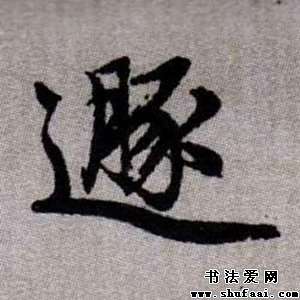 遯
书法爱网
www.shufaai.com